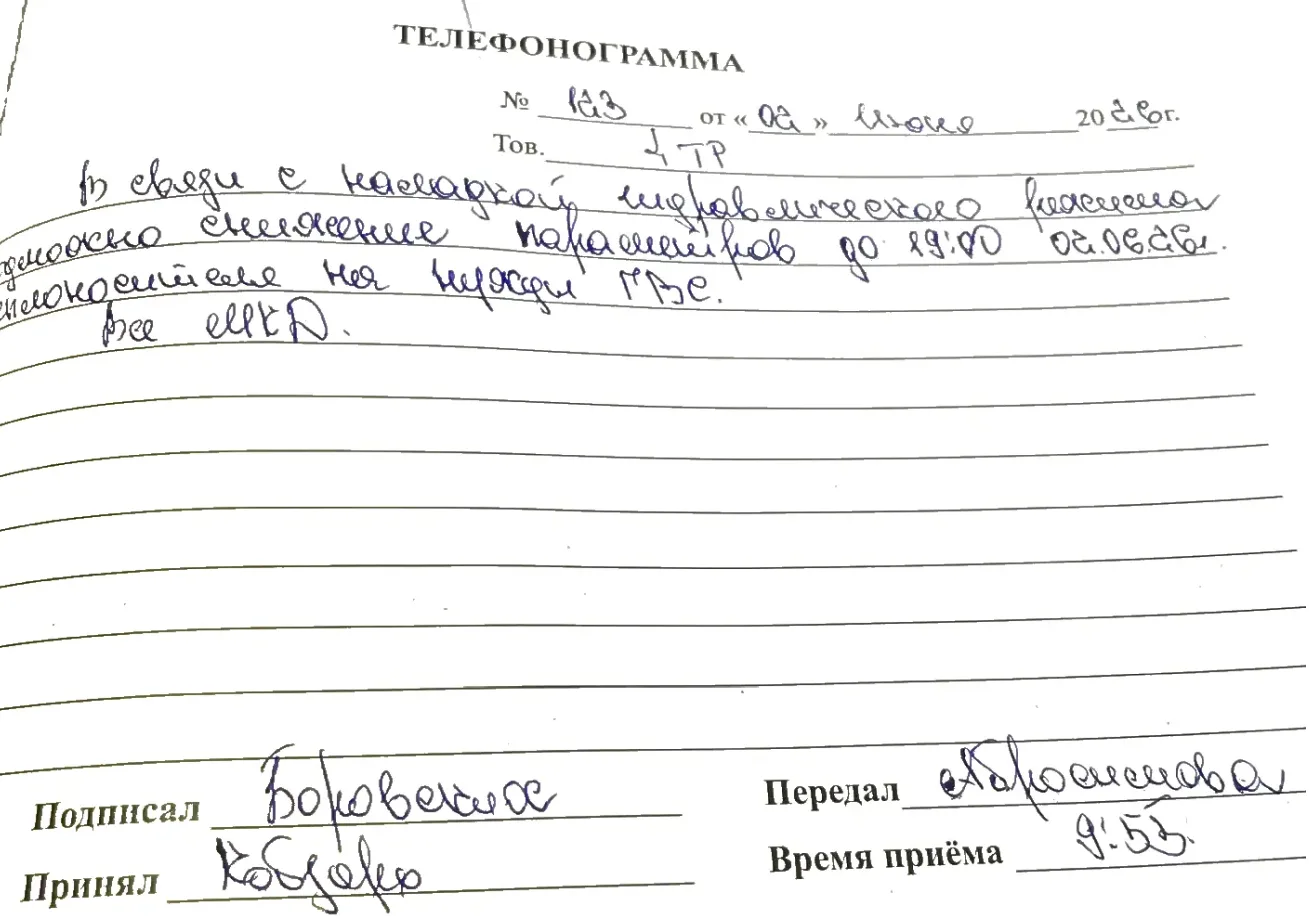 ТЕЛЕФОНОГРАММА
№ 123 от «02» июня 2026г.
Тов. ЦТР
В связи с наладкой гидравлического режима
возможно снижение параметров до 19:00 02.06.26г.
теплоносителя на нужды ГВС.
Все МКД.
Подписал Боровских Передал Абросимова
Принял Кобзарь Время приёма 9:53.